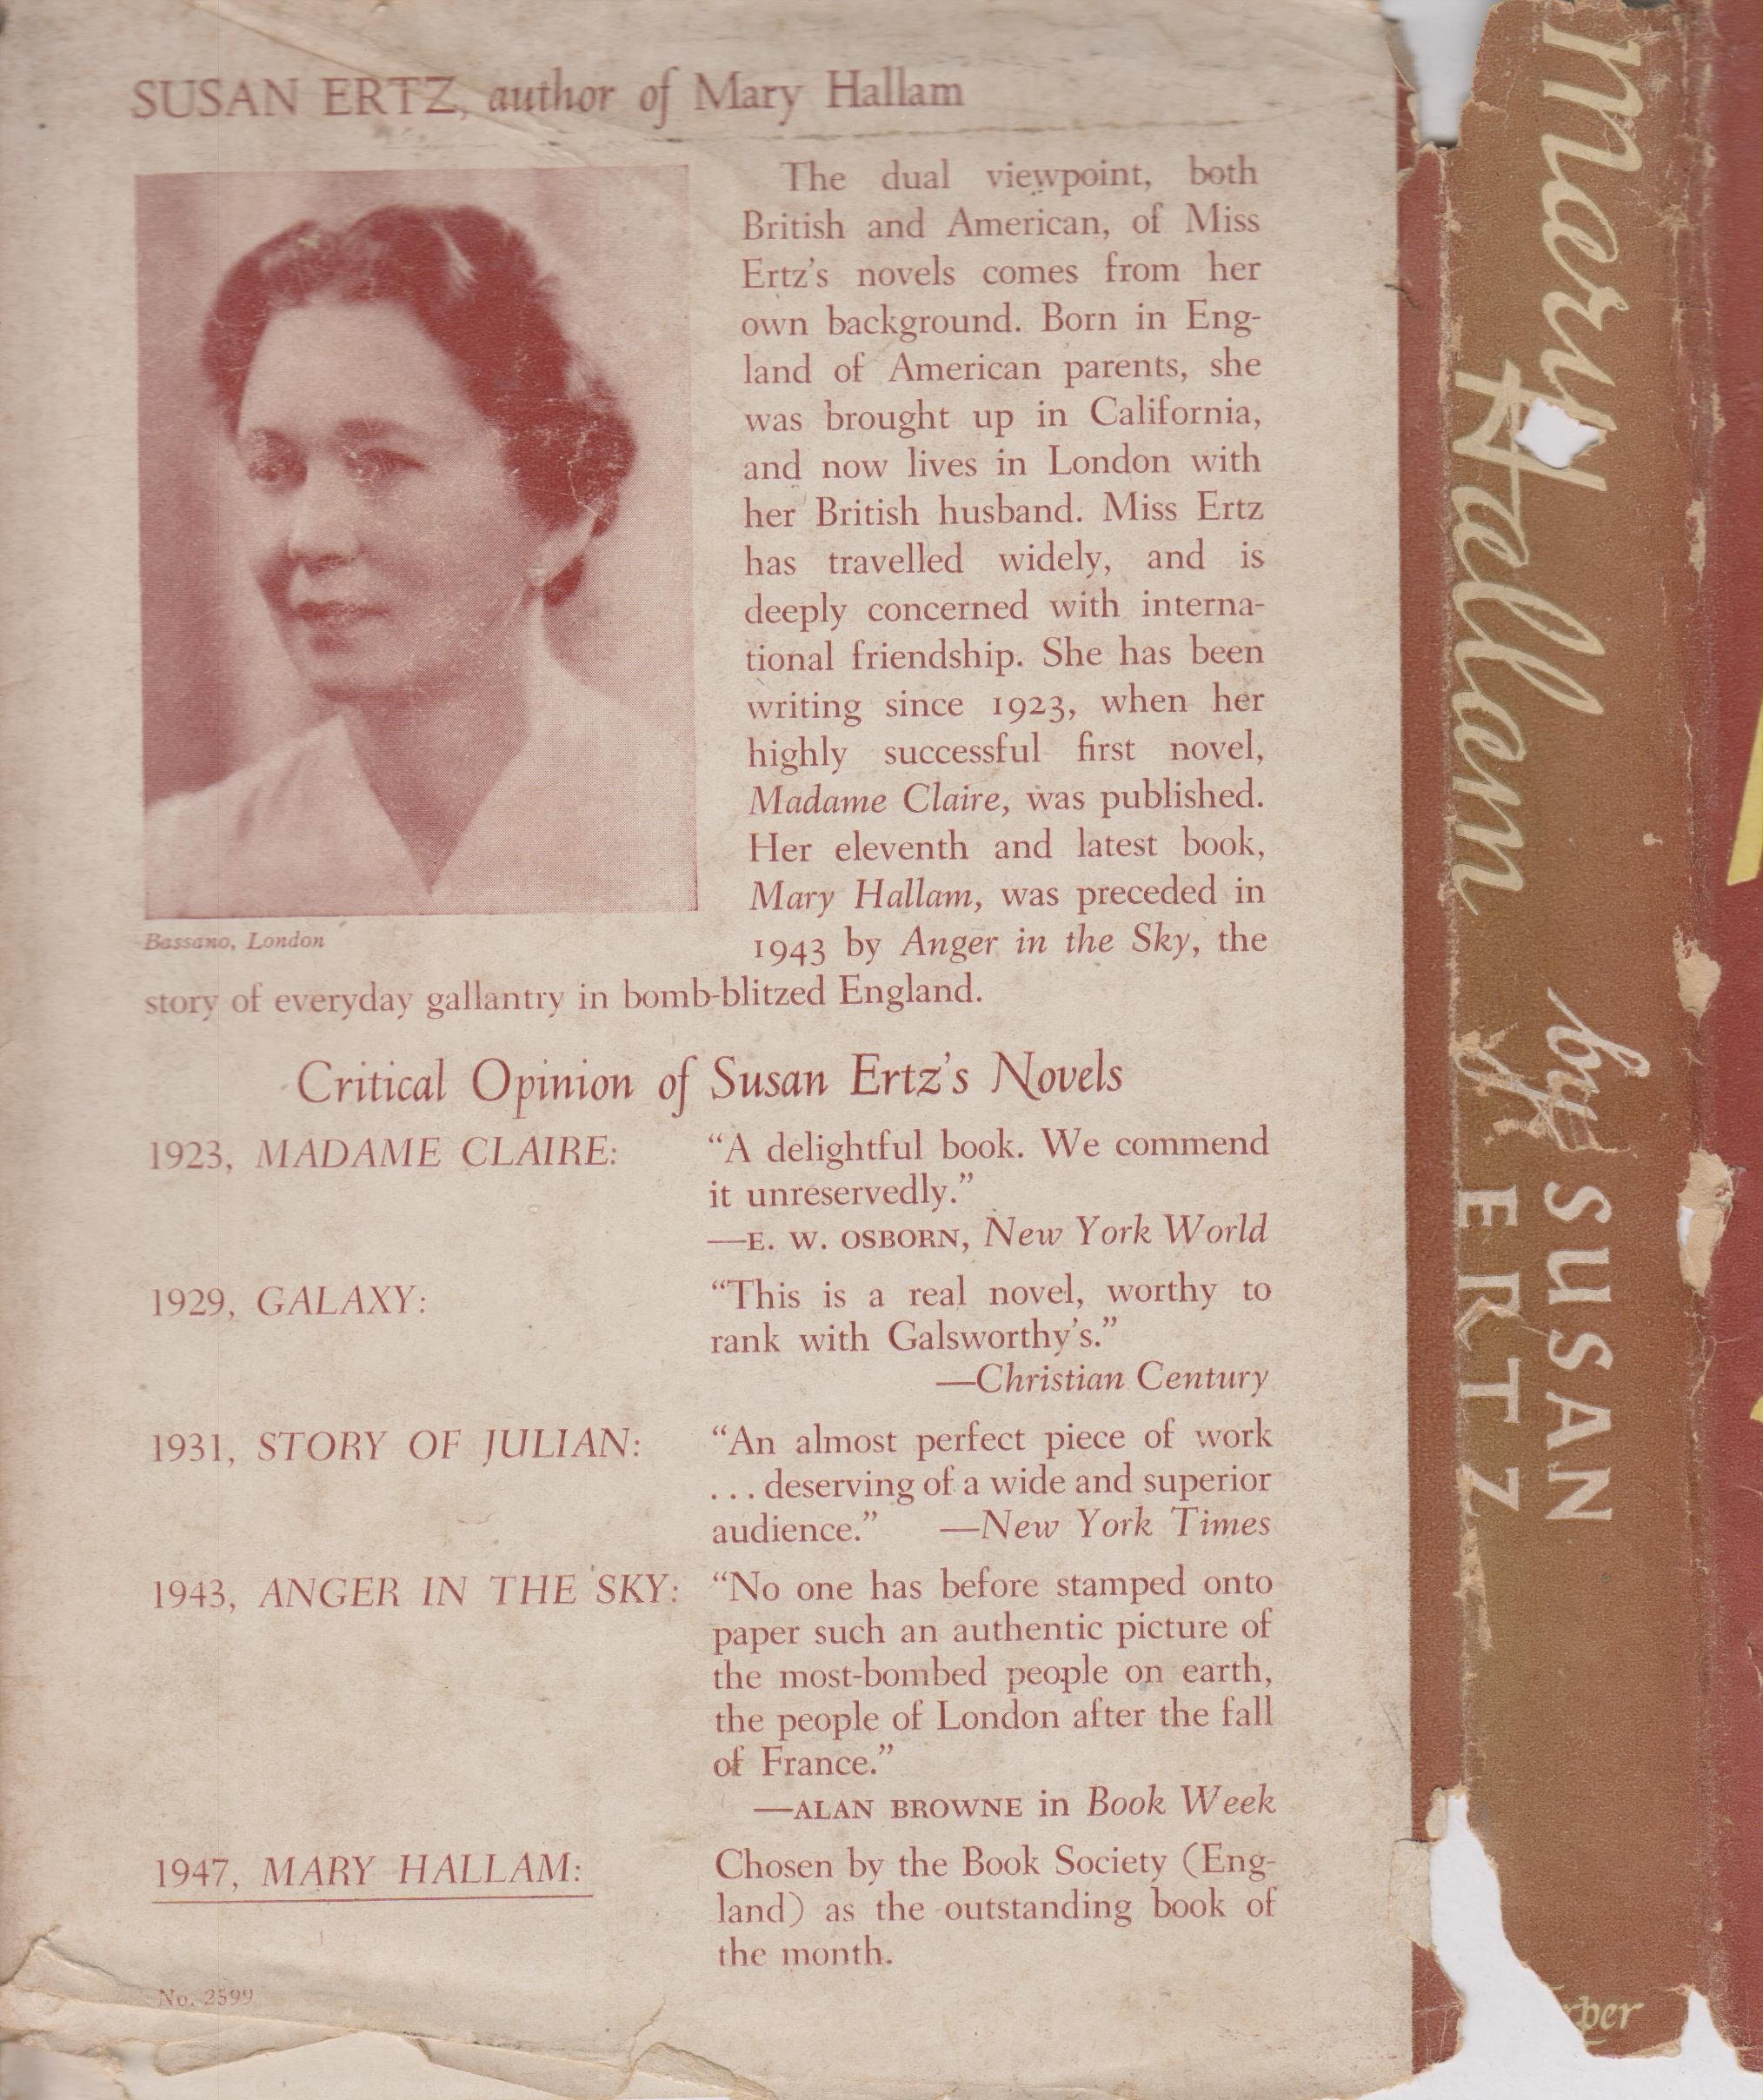 SUSAN ERTZ, author of Mary Hallam
The dual viewpoint, both
British and American, of Miss
Ertz's novels comes from her
own background. Born in Eng-
land of American parents, she
was brought up in California,
and now lives in London with
her British husband. Miss Ertz
has travelled widely, and is
deeply concerned with interna-
tional friendship. She has been
writing since 1923, when her
highly successful first novel,
Madame Claire, was published.
Her eleventh and latest book,
Mary Hallam, was preceded in
1943 by Anger in the Sky, the
story of everyday gallantry in bomb-blitzed England.
Bassano, London
Critical Opinion of Susan Ertz's Novels
1923, MADAME CLAIRE: “A delightful book. We commend
it unreservedly.”
—E. W. OSBORN, New York World
1929, GALAXY: “This is a real novel, worthy to
rank with Galsworthy's.”
—Christian Century
1931, STORY OF JULIAN: “An almost perfect piece of work
... deserving of a wide and superior
audience.” —New York Times
1943, ANGER IN THE SKY: “No one has before stamped onto
paper such an authentic picture of
the most-bombed people on earth,
the people of London after the fall
of France.”
—ALAN BROWNE in Book Week
1947, MARY HALLAM: Chosen by the Book Society (Eng-
land) as the outstanding book of
the month.
No. 2599
Mary
Hallam
by SUSAN
ERTZ